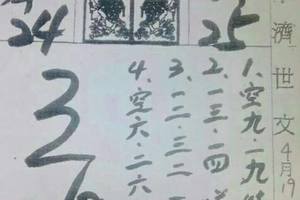 24
25
濟世文4月19
1.空九.二九
2.一三.一四
3.一二.三二
4.空六.二六
3